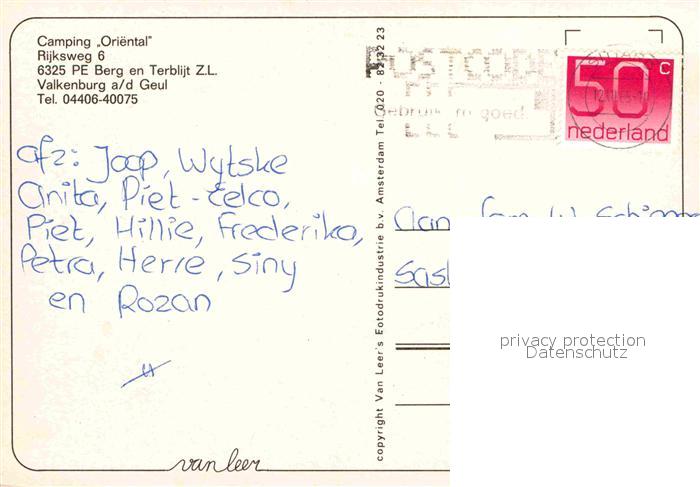 Camping „Oriëntal"
Rijksweg 6
6325 PE Berg en Terblijt Z.L.
Valkenburg a/d Geul
Tel. 04406-40075
afz: Joop, Wytske
Anita, Piet - Eelco,
Piet, Hillie, Frederika,
Petra, Herre, Siny
en Rozan
van leer
copyright Van Leer's Fotodrukindustrie b.v. Amsterdam Tel. 020 - 82 32 23
POSTCODE
Gebruik 'm goed.
50 c
nederland
Aan fam W.
privacy protection
Datenschutz